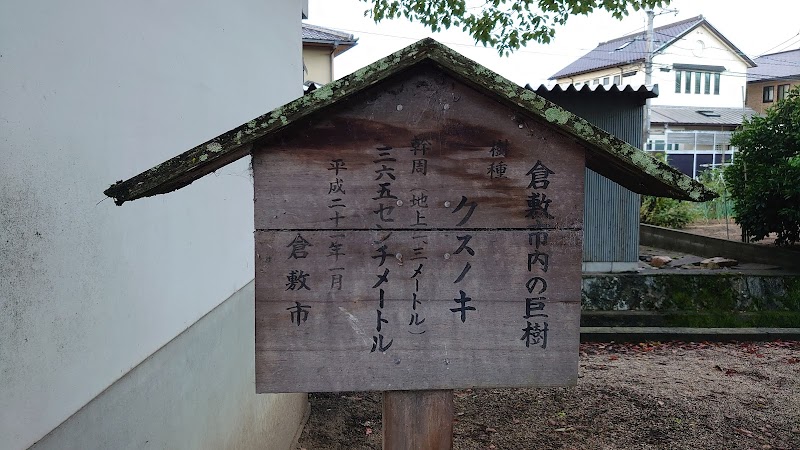 倉敷市内の巨樹
樹種
クスノキ
幹周（地上一.三メートル）
三六五センチメートル
平成二十一年一月
倉敷市